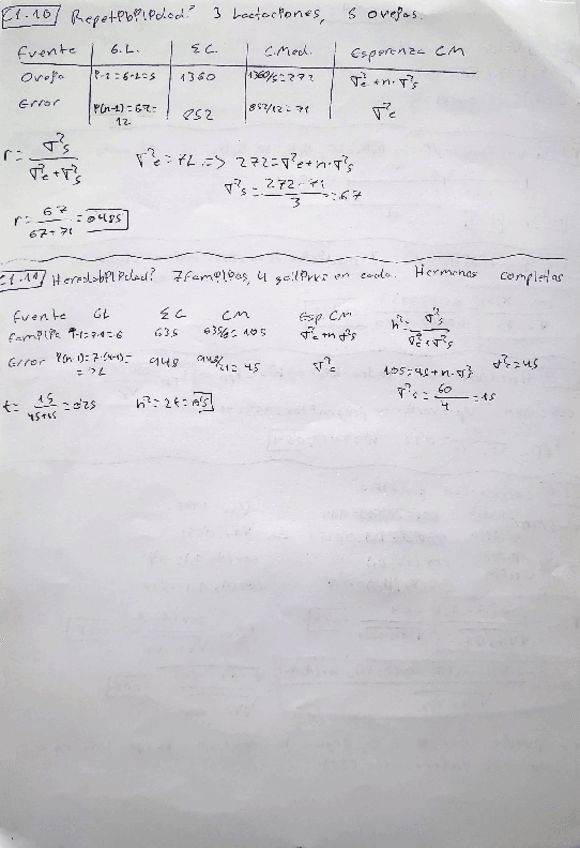 E1.10 Repetibilidad? 3 Lactaciones, 6 ovejas.
Fuente G.L. ΣC. C.Med. Esperanza CM
Oveja P-1=6-1=5 1360 1360/5=272 σ²e+n·σ²s
Error P(n-1)=6·2=12 852 852/12=71 σ²e
r = σ²s / σ²e+σ²s σ²e=71 => 272=σ²e+n·σ²s
σ²s = 272-71 / 3 = 67
r = 67 / 67+71 = 0.485
E1.11 Heredabilidad? 7 familias, 4 gallinas en cada. Hermanos completos
Fuente GL ΣC CM Esp CM h²= σ²s / σ²e+σ²s
Familia P-1=7-1=6 635 635/6=105 σ²e+n σ²s
Error P(n-1)=7·(4-1)= =21 945 945/21=45 σ²e 105=45+n·σ²s σ²e=45
σ²s = 60 / 4 = 15
t = 15 / 45+15 = 0'25 h²=2t=0'5